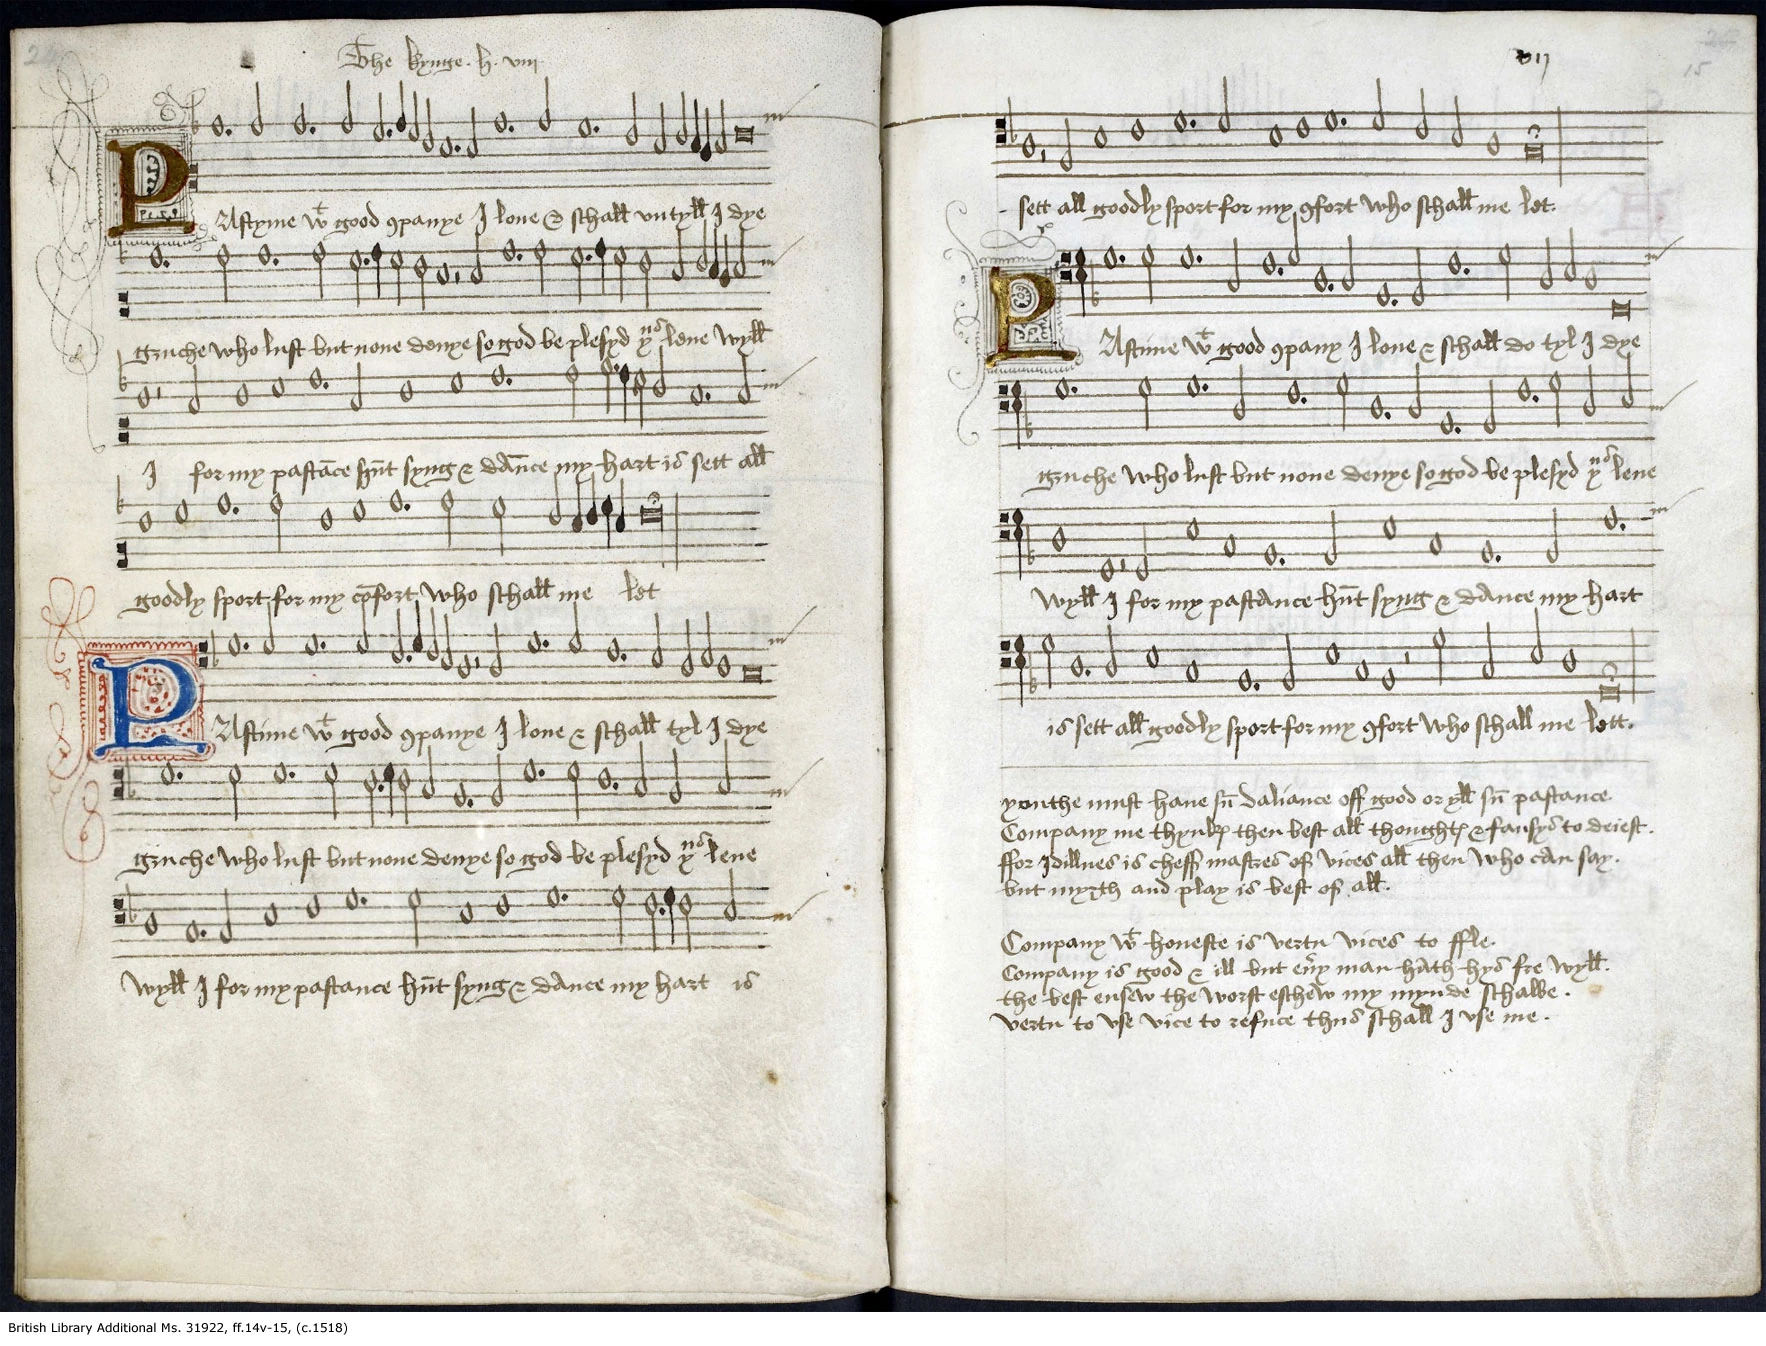 The kynge. h. viii
PAstyme wt good ꝯpanye I loue & schall vntyll I dye
gruche who lust but none denye so god be plesyd yus leue wyll
I for my pastāce hūt syng & dāce my hart is sett all
goodly sport for my cōfort who schall me let
PAstime wt good ꝯpanye I loue & schall tyl I dye
gruche who lust but none denye so god be plesyd yus leue
wyll I for my pastance hūt syng & dance my hart is
vij
15
sett all goodly sport for my ꝯfort who schall me let.
PAstime wt good ꝯpany I loue & schall do tyl I dye
gruche who lust but none denye so god be plesyd yus leue
wyll I for my pastance hūt syng & dance my hart
is sett all goodly sport for my ꝯfort who schall me lett.
youthe must haue sū daliance off good or yll sū pastance.
Company me thynkꝭ then best all thoughtꝭ & fansys to deiest.
ffor Idillnes is cheff mastres of vices all then who can say.
but myrth and play is best of all.
Company wt honeste is vertu vices to ffle.
Company is good & ill but eūy man hath hys fre wyll.
the best ensew the worst eschew my mynde schalbe.
vertu to vse vice to refuce thus schall I vse me.
British Library Additional Ms. 31922, ff.14v-15, (c.1518)